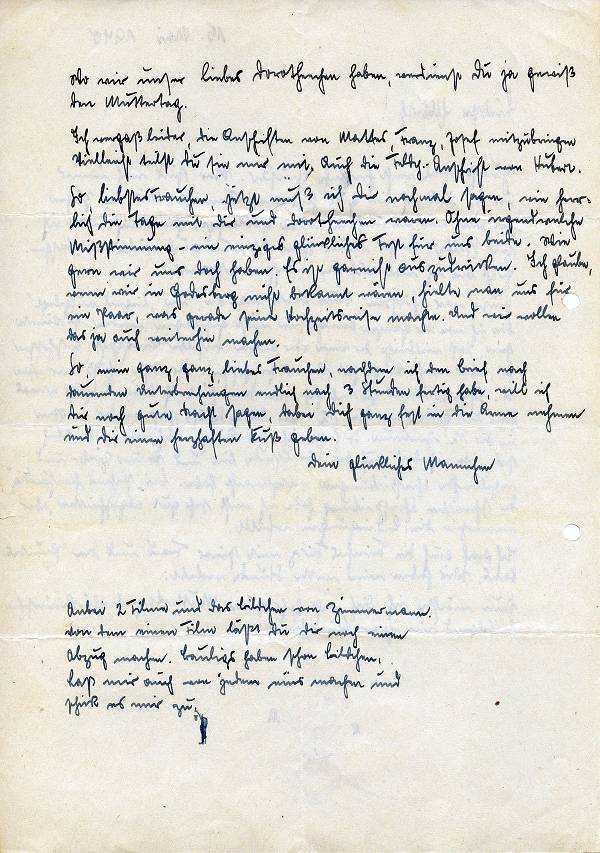 Wo wir unser liebes Dorothenchen haben, verdienst Du ja gewiß
den Muttertag.
Ich vergaß leider, die Anschriften von Mattes, Franz, Josef mitzubringen
Vielleicht teilst Du sie mir mit, auch die Feldp.-Anschrift von Hubert.
So liebstes Frauchen, jetzt muß ich Dir nochmal sagen, wie herr-
lich die Tage mit Dir und Dorothenchen waren. Ohne irgendwelche
Mißstimmung - ein einziges glückliches Fest für uns beide. Wie
gern wir uns doch haben. Es ist garnicht auszudrücken. Ich glaube,
wenn wir in Godesberg nicht bekannt wären, hielte man uns für
ein Paar, was gerade seine Hochzeitsreise machte. Und wir wollen
das ja auch weiterhin machen.
So mein ganz, ganz liebes Frauchen, nachdem ich den Brief nach
dauernden Unterbrechungen endlich nach 3 Stunden fertig habe, will ich
Dir noch gute Nacht sagen, dabei Dich ganz fest in die Arme nehmen
und Dir einen herzhaften Kuß geben.
Dein glückliches Männchen
Anbei 2 Filme und das Bildchen von Zimmermann.
Von dem einen Film läßt Du Dir noch einen
Abzug machen. haben schon Bildchen.
Laß mir auch von jedem eins machen und
schick es mir zu.
15. Mai 1940